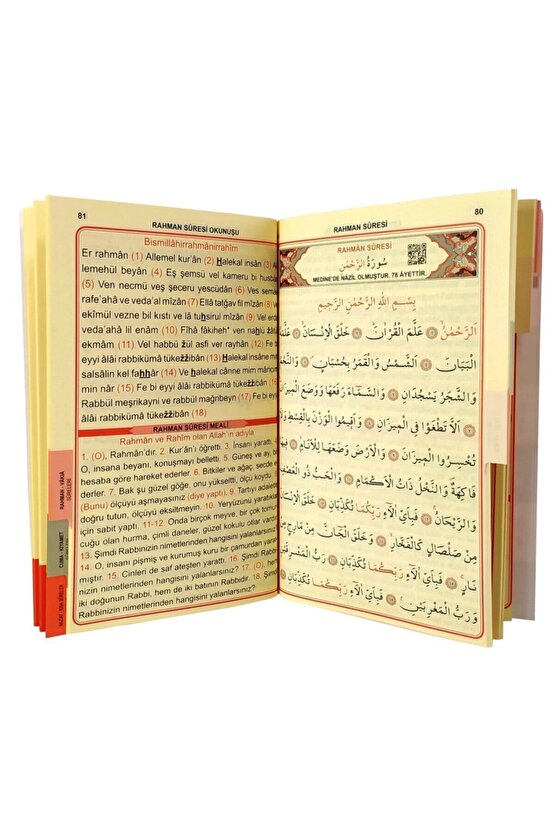 80
RAHMAN SÛRESİ
RAHMÂN SÛRESİ
سُورَةُ الرَّحْمٰنِ
MEDİNE'DE NÂZİL OLMUŞTUR. 78 ÂYETTİR.
بِسْمِ اللّٰهِ الرَّحْمٰنِ الرَّحِيمِ
اَلرَّحْمٰنُ ﴿١﴾ عَلَّمَ الْقُرْاٰنَ ﴿٢﴾ خَلَقَ الْاِنْسَانَ ﴿٣﴾
الْبَيَانَ ﴿٤﴾ اَلشَّمْسُ وَالْقَمَرُ بِحُسْبَانٍ ﴿٥﴾
وَالشَّجَرُ يَسْجُدَانِ ﴿٦﴾ وَالسَّمَاءَ رَفَعَهَا وَوَضَعَ الْمِيزَانَ
﴿٧﴾ اَلَّا تَطْغَوْا فِي الْمِيزَانِ ﴿٨﴾ وَاَقِيمُوا الْوَزْنَ بِالْقِسْطِ
تُخْسِرُوا الْمِيزَانَ ﴿٩﴾ وَالْاَرْضَ وَضَعَهَا لِلْاَنَامِ ﴿١٠﴾
فَاكِهَةٌ وَالنَّخْلُ ذَاتُ الْاَكْمَامِ ﴿١١﴾ وَالْحَبُّ ذُو الْعَصْفِ
وَالرَّيْحَانُ ﴿١٢﴾ فَبِاَيِّ اٰلَاءِ رَبِّكُمَا تُكَذِّبَانِ ﴿١٣﴾
مِنْ صَلْصَالٍ كَالْفَخَّارِ ﴿١٤﴾ وَخَلَقَ الْجَانَّ مِنْ مَارِجٍ مِنْ
نَارٍ ﴿١٥﴾ فَبِاَيِّ اٰلَاءِ رَبِّكُمَا تُكَذِّبَانِ ﴿١٦﴾ رَبُّ الْمَشْرِقَيْنِ
وَرَبُّ الْمَغْرِبَيْنِ ﴿١٧﴾ فَبِاَيِّ اٰلَاءِ رَبِّكُمَا تُكَذِّبَانِ ﴿١٨﴾
81
RAHMAN SÛRESİ OKUNUŞU
Bismillâhirrahmânirrahîm
Er rahmân (1) Allemel kur'ân (2) Halekal insân (3) Al
lemehül beyân (4) Eş şemsü vel kameru bi husbân
(5) Ven necmü veş şeceru yescüdân (6) Ves semâe
rafe'ahâ ve veda'al mîzân (7) Ellâ tatğav fil mîzân (8) Ve
ekîmul vezne bil kıstı ve lâ tuhsirul mîzân (9) Vel erda
veda'ahâ lil enâm (10) Fîhâ fâkiheh* ven nahlü zâtül
ekmâm (11) Vel habbü zül asfi ver rayhân (12) Fe bi
eyyi âlâi rabbikümâ tükezzibân (13) Halekal insâne min
salsâlin kel fahhâr (14) Ve halekal cânne mim mâricim
min nâr (15) Fe bi eyyi âlâi rabbikümâ tükezzibân (16)
Rabbül meşrikayni ve rabbül mağribeyn (17) Fe bi
eyyi âlâi rabbikümâ tükezzibân (18)
RAHMAN SÛRESİ MEALİ
Rahmân ve Rahîm olan Allah'ın adıyla
1. (O), Rahmân'dır. 2. Kur'ân'ı öğretti. 3. İnsanı yarattı. 4.
O, insana beyanı, konuşmayı belletti. 5. Güneş ve ay, bir
hesaba göre hareket ederler. 6. Bitkiler ve ağaç, secde e-
derler. 7. Bak şu güzel göğe, onu yükseltti, ölçü koydu. 8.
(Bunu) ölçüyü aşmayasınız (diye yaptı). 9. Tartıyı adaletle
doğru tutun, ölçüyü eksiltmeyin. 10. Yeryüzünü yaratıklar
için sabit yaptı. 11-12. Onda birçok meyve, bir çok tomur-
cuğu olan hurma, çimli daneler, güzel kokulu otlar vardır.
13. Şimdi Rabbinizin nimetlerinden hangisini yalanlarsınız?
14. O, insanı pişmiş ve kurumuş kuru bir çamurdan yarat-
mıştır. 15. Cinleri de saf ateşten yarattı. 16. Şimdi Rabbi
nizin nimetlerinden hangisini yalanlarsınız? 17. (O), hem
iki doğunun Rabbi, hem de iki batının Rabbidir. 18. Şimdi
Rabbinizin nimetlerinden hangisini yalanlarsınız?
RAHMAN - VAKIA
SÛRELERİ
CUMA - KIYAMET
NAZİAT - KISA SÛRELER